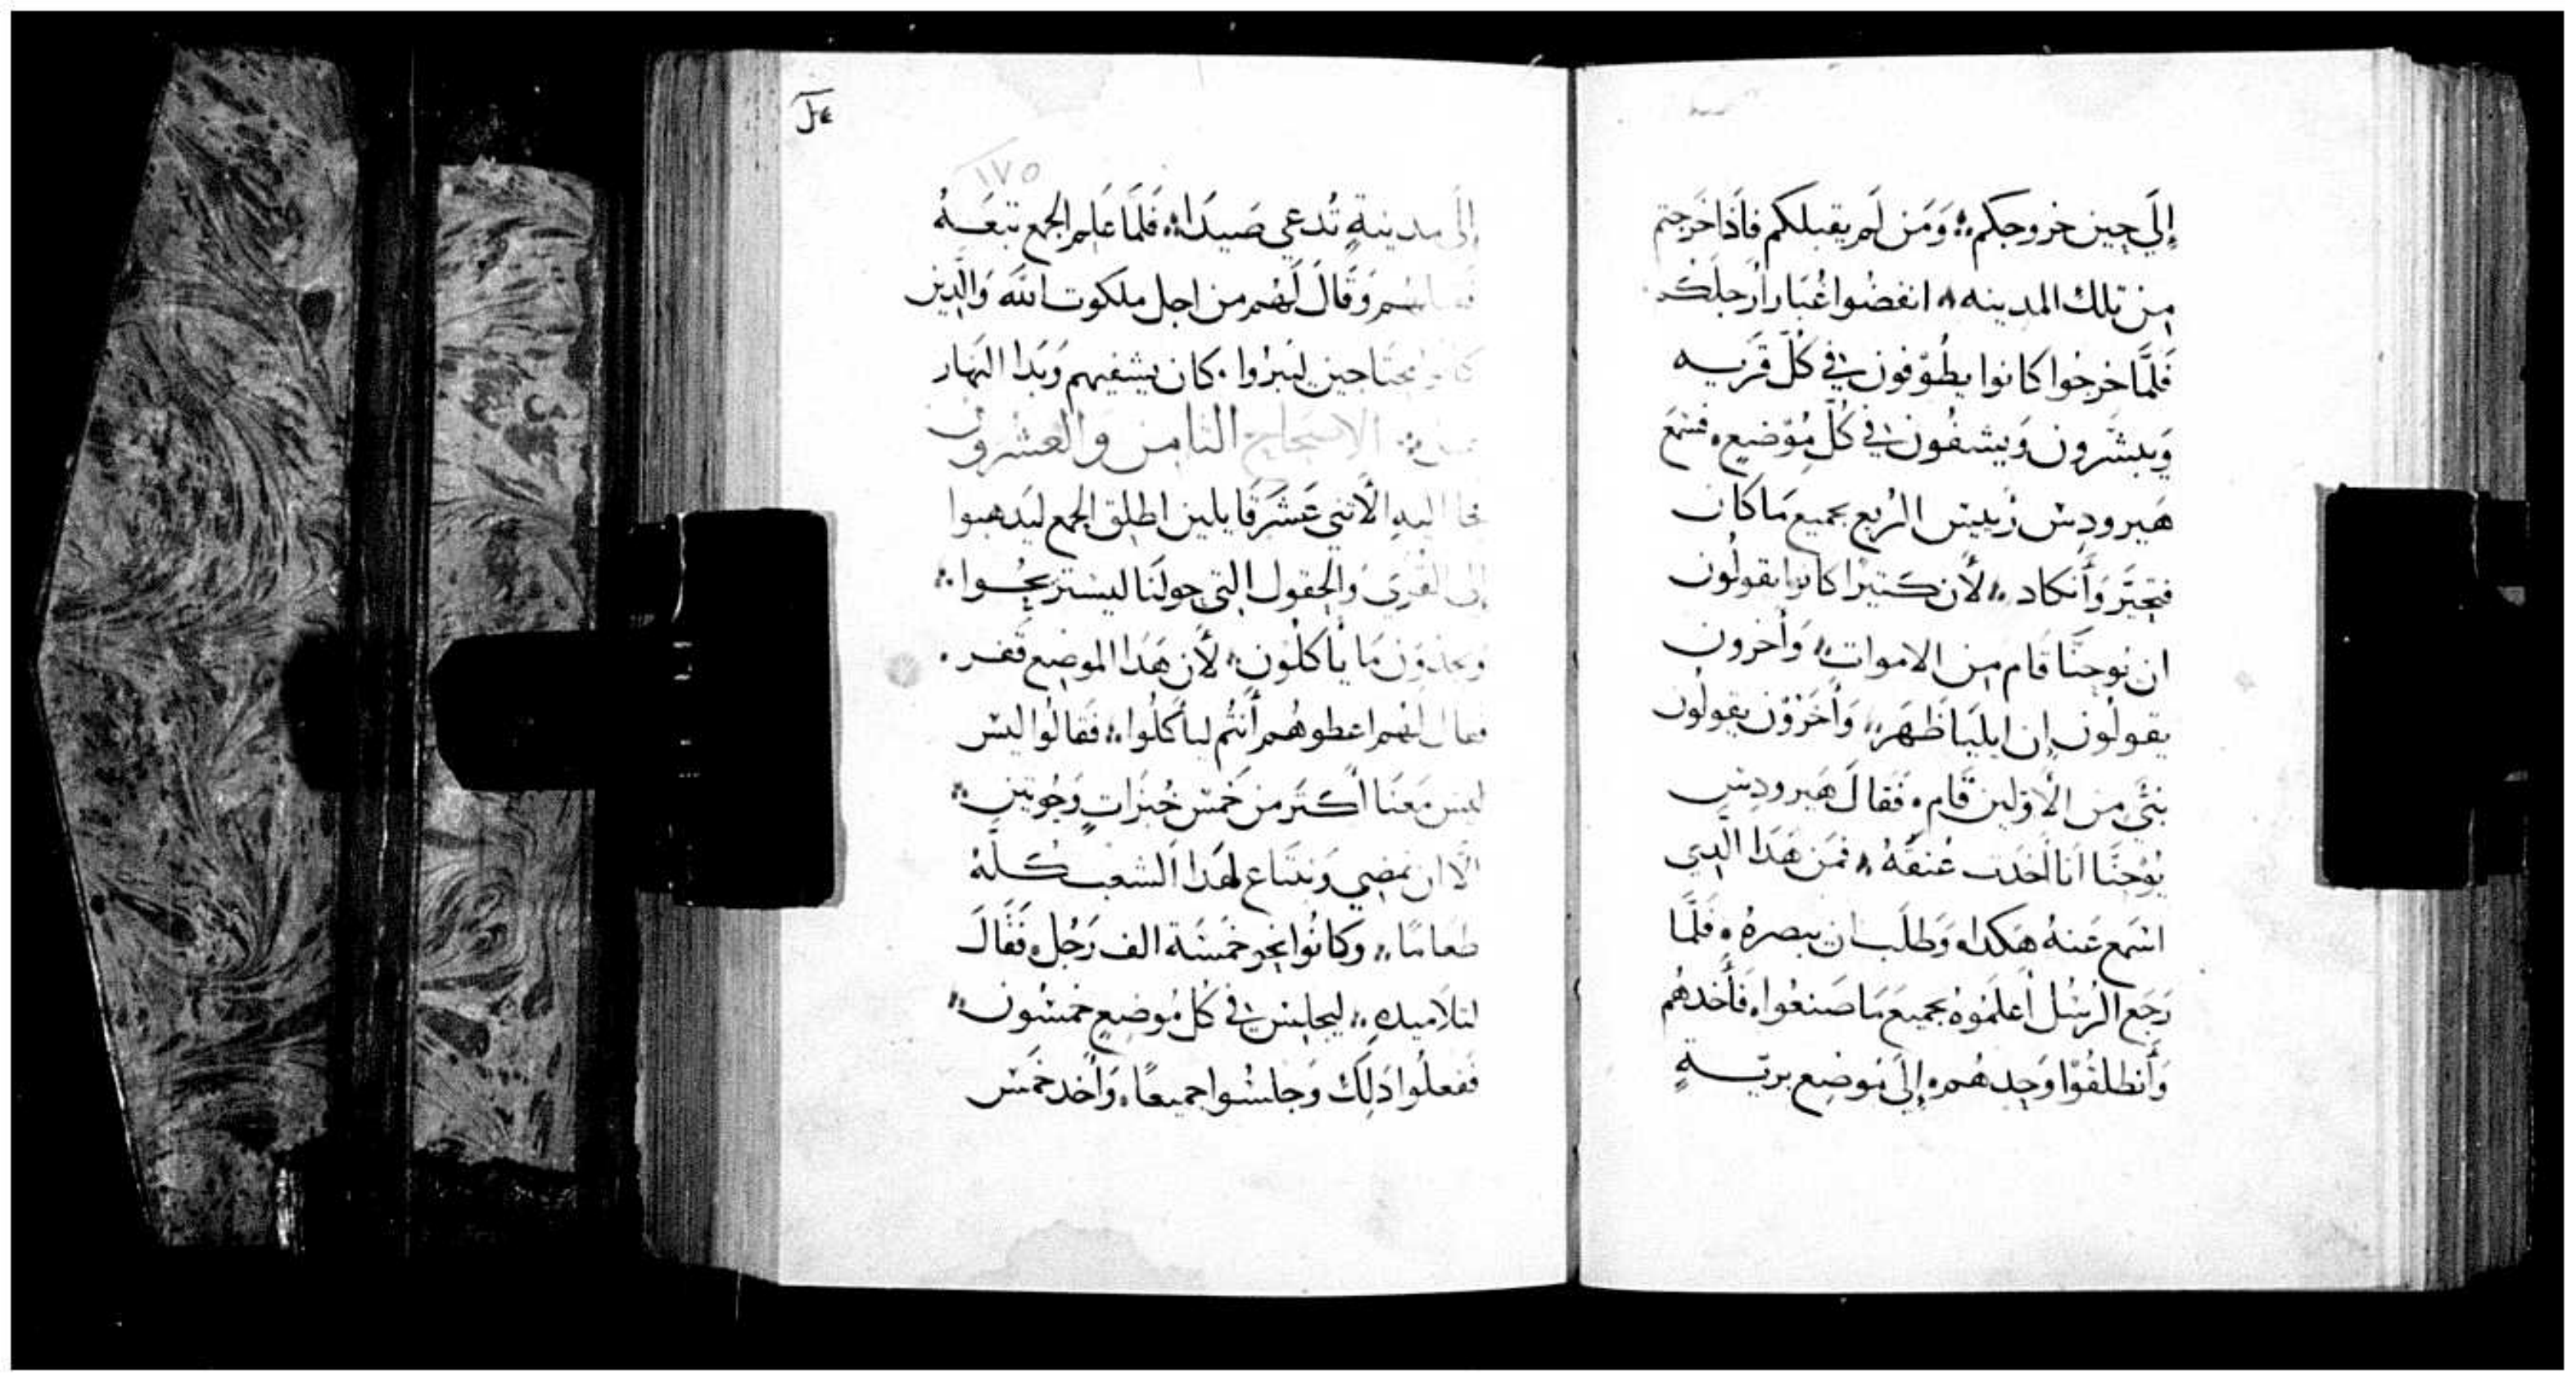 إلَي حِين خروجكم ۞ وَمَن لَم يقبلكم فاَذاخَرجتم
مِن تلك المدينه ۞ انفضُوا غُبَار اَرجلكم
فَلمَّا خرجُوا كانوا يطُوّفون في كُلّ قَريه
وَيبشّرون وَيشفُون في كُلّ مُوّضِعٍ ۞ فسَمعَ
هَيرودِسْ رَييسْ الرُبع بجميع مَا كان
فتحيَّر وَأنكاد ۞ لأن كتيرا كانوا يقولُون
ان يُوحنَّا قام مِن الاموات ۞ وَأخرون
يقولُون إن ايليَا ظَهَر ۞ وَأخَرَوْن يقولُون
نبيٌّ مِن الأوّلين قَام ۞ فَقالَ هَيرودِسْ
يُوْحِنَّا اَنا اَخدَت عُنقَهُ ۞ فمَن هَدا الَّدي
اسَمع عَنهُ هَكدا ۞ وَطلَب ان يبصرهُ ۞ فَلمَّا
رَجَع الرسُل أعلَمُوهُ بجميعَ مَا صَنعُوا ۞ فَأخَدهُم
وَأنطلقُوْا وَحِدهُم ۞ إلَي مَوضِع برِّيةٍ
١٧٥
إلَى مدينةٍ تُدعي صَيدَا ۞ فَلمَّا عَلِم الجمع تبعَهُ
وَقَالَ لَهُم من اجل ملكوت الله وَالَّدين
كانوا محتَاجين ليَبروا . كان يشفيهم وَبَدا النهَار
الاصحاح التامن والعشرون
اليهِ الأتني عَشَر قَايلين اطلِق الجمع ليَدهبوا
إلى القُرَي وَالحقول التي حولَنا ليستريحُوا ۞
وَيجدوَن مَا يأكلُون ۞ لأن هَدا الموضِع قَفر .
فقال لهُم اعطوهُم أنتُم ليأكلُوا ۞ فَقالُوا ليسْ
ليس مَعنَا أكتَر من خَمسْ خُبزَاتٍ وَحُوتين ۞
الّا ان نمضِي وَنبتاع لهَدا اَلشعب كلّهُ
طعَامًا ۞ وكانُوا نحو خَمسَة الف رَجُل ۞ فَقَالَ
لتلاميدهِ ۞ ليجلِسْ في كُل مُوضِعٍ خمسُون ۞
ففعلُوا دَلِكَ وَجلسُوا جميعًا ۞ وَأخد خمَسْ